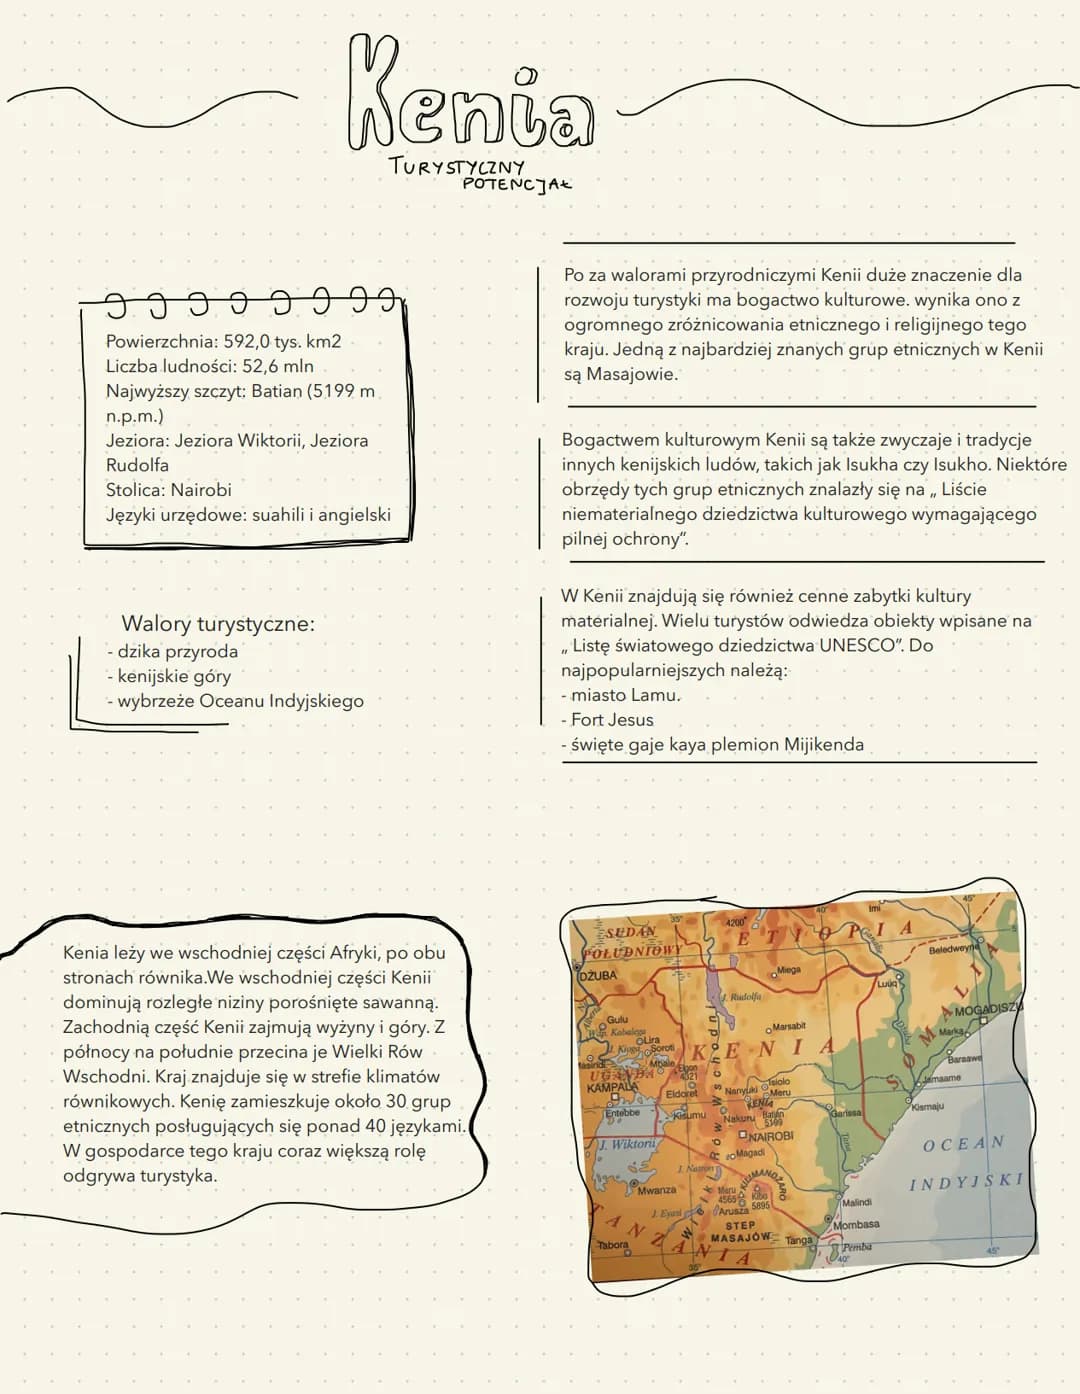 Kenia
TURYSTYCZNY
POTENCJAŁ
Powierzchnia: 592,0 tys. km2
Liczba ludności: 52,6 mln
Najwyższy szczyt: Batian (5199 m
n.p.m.)
Jeziora: Jeziora Wiktorii, Jeziora
Rudolfa
Stolica: Nairobi
Języki urzędowe: suahili i angielski
Walory turystyczne:
- dzika przyroda
- kenijskie góry
- wybrzeże Oceanu Indyjskiego
Po za walorami przyrodniczymi Kenii duże znaczenie dla
rozwoju turystyki ma bogactwo kulturowe. wynika ono z
ogromnego zróżnicowania etnicznego i religijnego tego
kraju. Jedną z najbardziej znanych grup etnicznych w Kenii
są Masajowie.
Bogactwem kulturowym Kenii są także zwyczaje i tradycje
innych kenijskich ludów, takich jak Isukha czy Isukho. Niektóre
obrzędy tych grup etnicznych znalazły się na „ Liście
niematerialnego dziedzictwa kulturowego wymagającego
pilnej ochrony”.
W Kenii znajdują się również cenne zabytki kultury
materialnej. Wielu turystów odwiedza obiekty wpisane na
„ Listę światowego dziedzictwa UNESCO”. Do
najpopularniejszych należą:
- miasto Lamu.
- Fort Jesus
- święte gaje kaya plemion Mijikenda
Kenia leży we wschodniej części Afryki, po obu
stronach równika.We wschodniej części Kenii
dominują rozległe niziny porośnięte sawanną.
Zachodnią część Kenii zajmują wyżyny i góry. Z
północy na południe przecina je Wielki Rów
Wschodni. Kraj znajduje się w strefie klimatów
równikowych. Kenię zamieszkuje około 30 grup
etnicznych posługujących się ponad 40 językami.
W gospodarce tego kraju coraz większą rolę
odgrywa turystyka.
35°
40°
45°
Imi
4200
SUDAN
POŁUDNIOWY
ETIOPIA
Beledweyne
5
DŻUBA
Miega
Luuq
J. Rudolfa
SOMALIA
MOGADISZU
Gulu
Wdp. Kabalega
Lira
Marsabit
Marka
J. Kioga
Soroti
KENIA
Baraawe
Masindi
Mbale
Elgon
4321
UGANDA
KAMPALA
Eldoret
Nanyuki
Isiolo
Meru
Jamaame
Entebbe
Kisumu
Nakuru
KENIA
Batian
5199
Garissa
Kismaju
J. Wiktorii
NAIROBI
Tana
OCEAN
Magadi
INDYJSKI
J. Natron
Wielki Rów Wschodni
Mwanza
Meru
4565
KILIMANDŻARO
Kibo
5895
Malindi
J. Eyasi
Arusza
Mombasa
TANZANIA
STEP
MASAJÓW
Tanga
Pemba
Tabora
35°
40°
45°